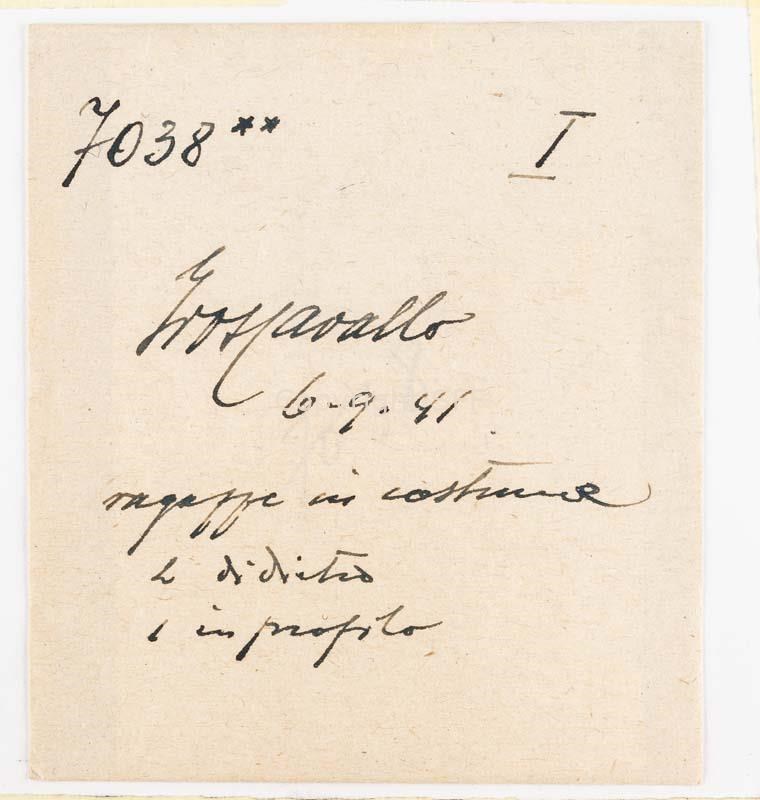 7038** I
Groscavallo
6-9-41
ragazze in costume
2 di dietro
1 in profilo